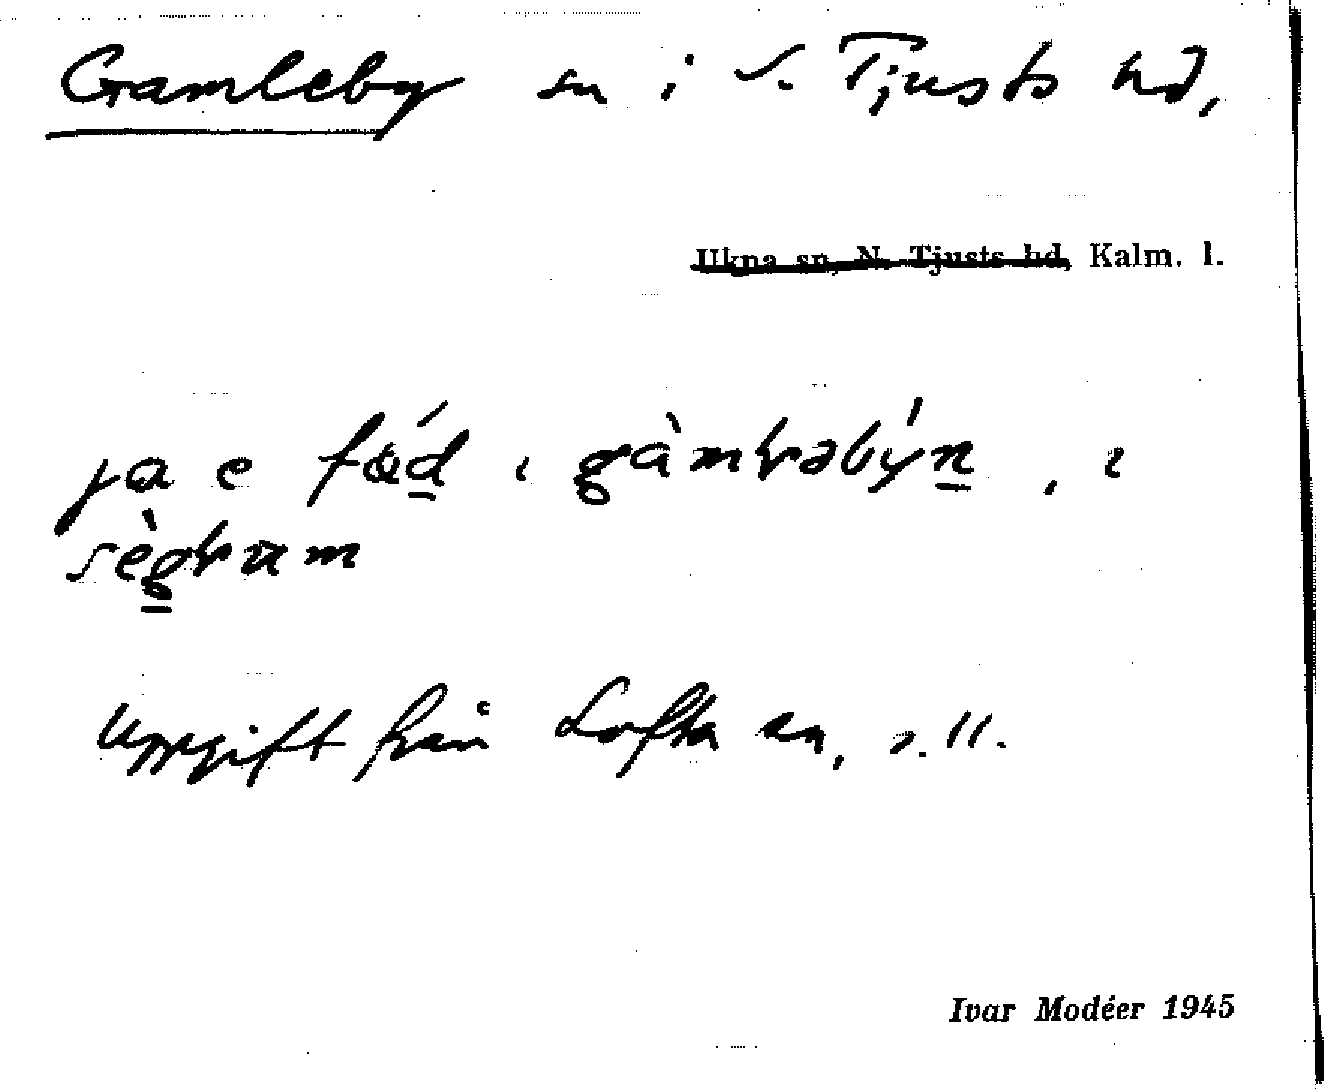 Gamleby sn i S. Tjusts hd,
Ukna sn, N. Tjusts hd, Kalm. l.
ja e fǿd ı gàmlrəbýn, ı
sègrum
Uppgift från Lofta sn, s. 11.
Ivar Modéer 1945